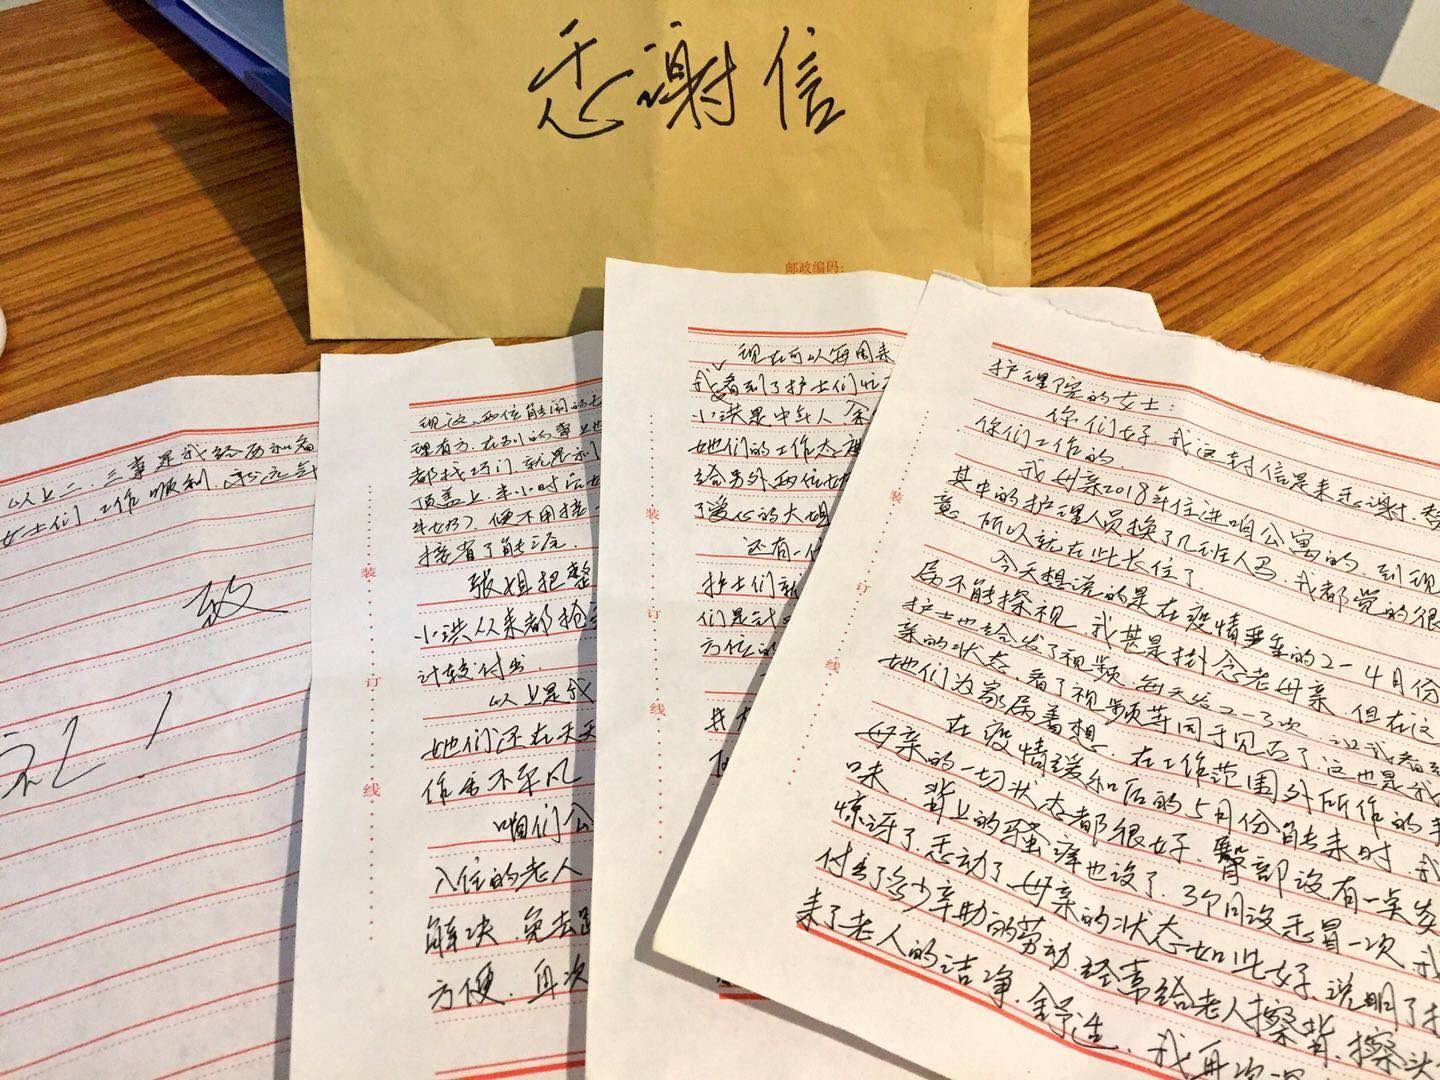 感谢信
邮政编码:
护理院的女士：
你们好，我这封信是来感谢
你们工作的
我母亲2018年住进咱公寓的，到现
其中的护理人员换了几班人马，我都觉的很
意，所以就在此长住了
今天想说的是在疫情严重的2－4月份
属不能探视，我甚是挂念老母亲，但在这
护士也给发了视频，每天发2－3次，让我看到
亲的状态，看了视频等同于见面了，这也是我
她们为家属着想，在工作范围外所作的
在疫情缓和后的5月份能来时，我
母亲的一切状态都很好，臀部没有一点
味，背上的骚痒也没了，3个月没感冒一次，我
惊讶了感动了，母亲的状态如此好，说明了护
付出了多少辛勤的劳动，经常给老人擦背，擦头
来了老人的洁净，舒适，我再次
现在可以每周来
我看到了护士们忙
小洪是中年人
她们的工作态度
给另外两位
了爱心的大姐
还有一
护士们
们是
方位的
装
订
线
现这两位能闹的
理有方，在别的事上也
都找巧门
顶盖上，半小时后
牛奶），便不用接
接省了能源
张姐把整
小洪从来都抢
计较付出
以上是我
她们还在天天
作出不平凡
咱们公
入住的老人
解决，免去
方便，其次
装
订
线
以上一、二、三事是我经历和看
女士们，工作顺利，
致
礼！
装
订
线